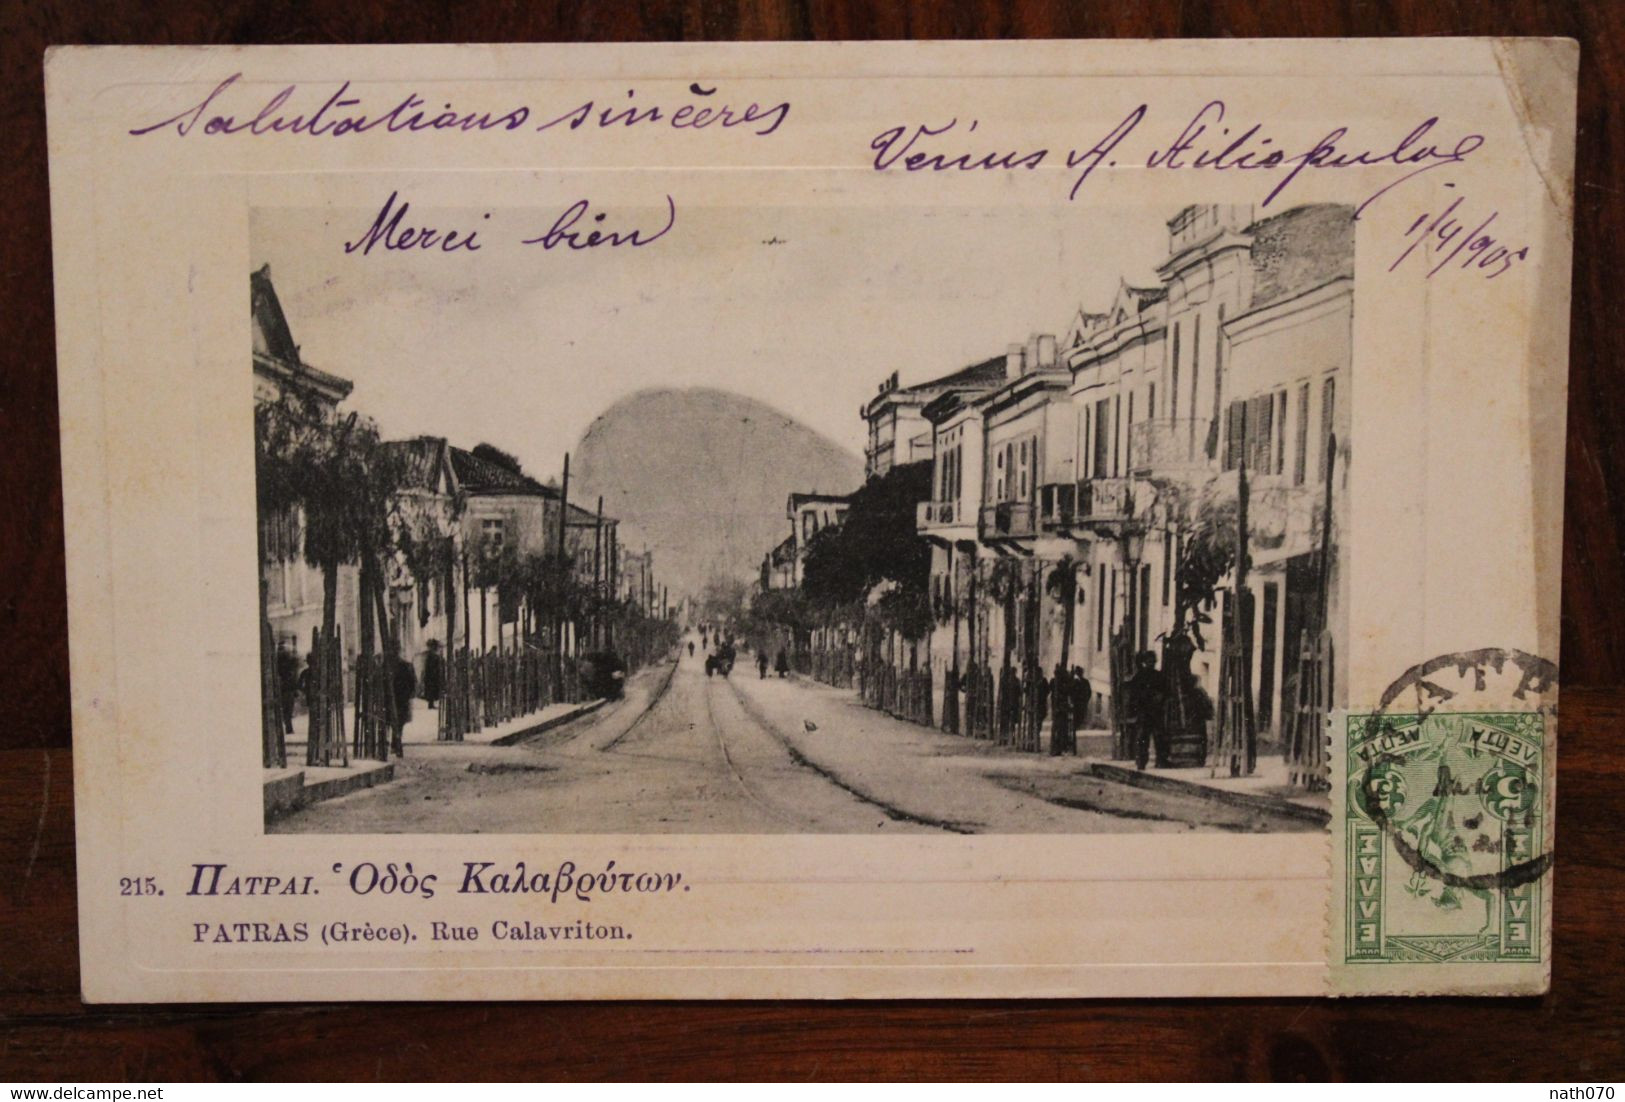 Salutations sincères
Venus A. Stiliopulos
Merci bien
1/4/905
215. ΠΑΤΡΑΙ. Ὁδὸς Καλαβρύτων.
PATRAS (Grèce). Rue Calavriton.
ΕΛΛΑΣ
5 ΛΕΠΤΑ
5 ΛΕΠΤΑ
nath070